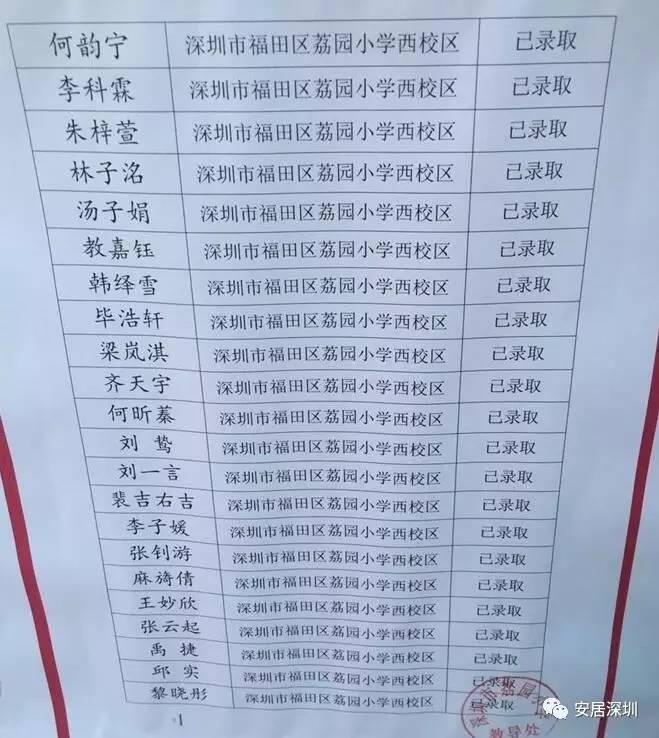 何韵宁 深圳市福田区荔园小学西校区 已录取
李科霖 深圳市福田区荔园小学西校区 已录取
朱梓萱 深圳市福田区荔园小学西校区 已录取
林子洺 深圳市福田区荔园小学西校区 已录取
汤子娟 深圳市福田区荔园小学西校区 已录取
教嘉钰 深圳市福田区荔园小学西校区 已录取
韩绎雪 深圳市福田区荔园小学西校区 已录取
毕浩轩 深圳市福田区荔园小学西校区 已录取
梁岚淇 深圳市福田区荔园小学西校区 已录取
齐天宇 深圳市福田区荔园小学西校区 已录取
何昕蓁 深圳市福田区荔园小学西校区 已录取
刘鸷 深圳市福田区荔园小学西校区 已录取
刘一言 深圳市福田区荔园小学西校区 已录取
裴吉右吉 深圳市福田区荔园小学西校区 已录取
李子媛 深圳市福田区荔园小学西校区 已录取
张钊游 深圳市福田区荔园小学西校区 已录取
麻旖倩 深圳市福田区荔园小学西校区 已录取
王妙欣 深圳市福田区荔园小学西校区 已录取
张云起 深圳市福田区荔园小学西校区 已录取
禹捷 深圳市福田区荔园小学西校区 已录取
邱实 深圳市福田区荔园小学西校区 已录取
黎晓彤 深圳市福田区荔园小学西校区 已录取
教导处
安居深圳